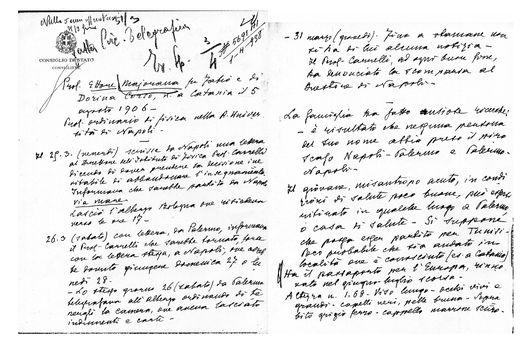 CONSIGLIO DI STATO
Prof. Ettore Majorana fu Fabio e di
Dorina Corso, n. a Catania il 5
agosto 1906 -
Prof. ordinario di fisica nella R. Univer
sità di Napoli -
25.3. (venerdì) scrisse da Napoli una lettera
al direttore dell'istituto di fisica Prof. Carrelli
dicendo di dover prendere la decisione ine
vitabile di abbandonare l'insegnamento.
Informava che sarebbe partito da Napoli
via mare -
Lasciò l'albergo Bologna ove risiedeva
verso le ore 17 -
26.3 (sabato) con lettera, da Palermo, informava
il Prof. Carrelli che sarebbe tornato forse
con la lettera stessa, a Napoli, ove avreb
be dovuto giungere domenica 27 o lu
nedì 28 -
- Lo stesso giorno 26 (sabato) da Palermo
telegrafava all'albergo ordinando di te
nergli la camera, ove aveva lasciato
indumenti e carte -
- 31 marzo (giovedì). Fino a stamane non
si ha di lui alcuna notizia -
Il Prof. Carrelli, ad ogni buon fine,
ha denunciato la scomparsa al
Questore di Napoli -
La famiglia ha fatto ricerche:
- è risultato che nessuna persona
del suo nome abbia preso il piro
scafo Napoli - Palermo e Palermo -
Napoli -
Il giovane, misantropo acuto, in condi
zioni di salute poco buone, può essersi
ritirato in qualche luogo a Palermo
o casa di salute - Si suppone
che possa esser partito per Tunisi -
Poco probabile che sia andato in
località ove è conosciuto (es. a Catania)
Ha il passaporto per l'Europa, rinno
vato nel giugno-luglio scorso -
Altezza m. 1.68 - Viso lungo - occhi vivi e
grandi - capelli neri, pelle bruna - Sopra
bito grigio ferro - cappello marrone scuro -